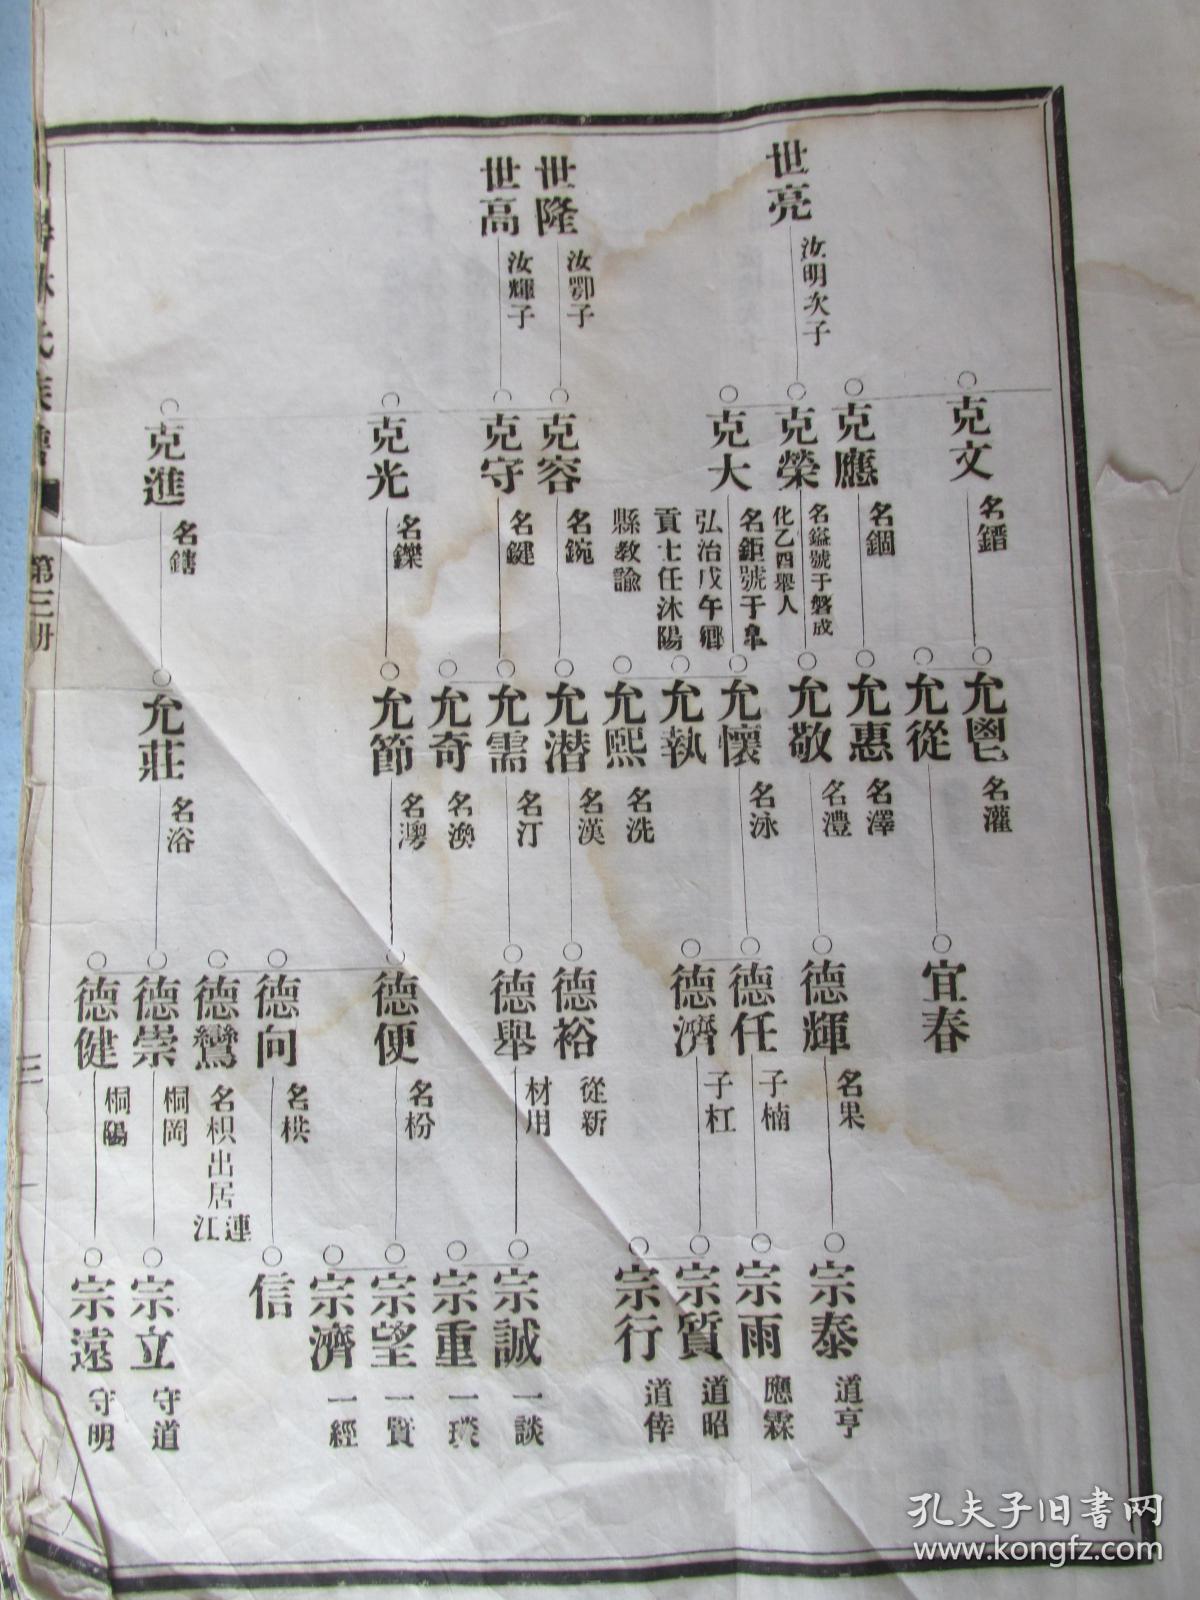 世亮
汝明次子
世隆
汝鄂子
世高
汝輝子
克文
名鐕
克應
名錮
克榮
名鎰號于磐成
化乙酉舉人
克大
名鉅號于阜
弘治戊午鄉
貢士任沐陽
縣教諭
克容
名鋺
克守
名鍵
克光
名鑠
克進
名鎋
允鬯
名灌
允從
允惠
名澤
允敬
名澧
允懷
名泳
允執
允熙
名洗
允潛
名漢
允需
名汀
允奇
名渙
允節
允莊
名浴
宜春
德輝
名果
德任
子楠
德濟
子杠
德裕
從新
德舉
材用
德便
名枌
德向
名栱
德鸞
名枳出居連江
德崇
桐岡
德健
桐陽
宗泰
道亨
宗雨
應霖
宗質
道昭
宗行
道倖
宗誠
一談
宗重
宗望
一賢
宗濟
一經
信
宗立
守道
宗遠
守明
林氏族譜
第三册
三
孔夫子旧书网
www.kongfz.com